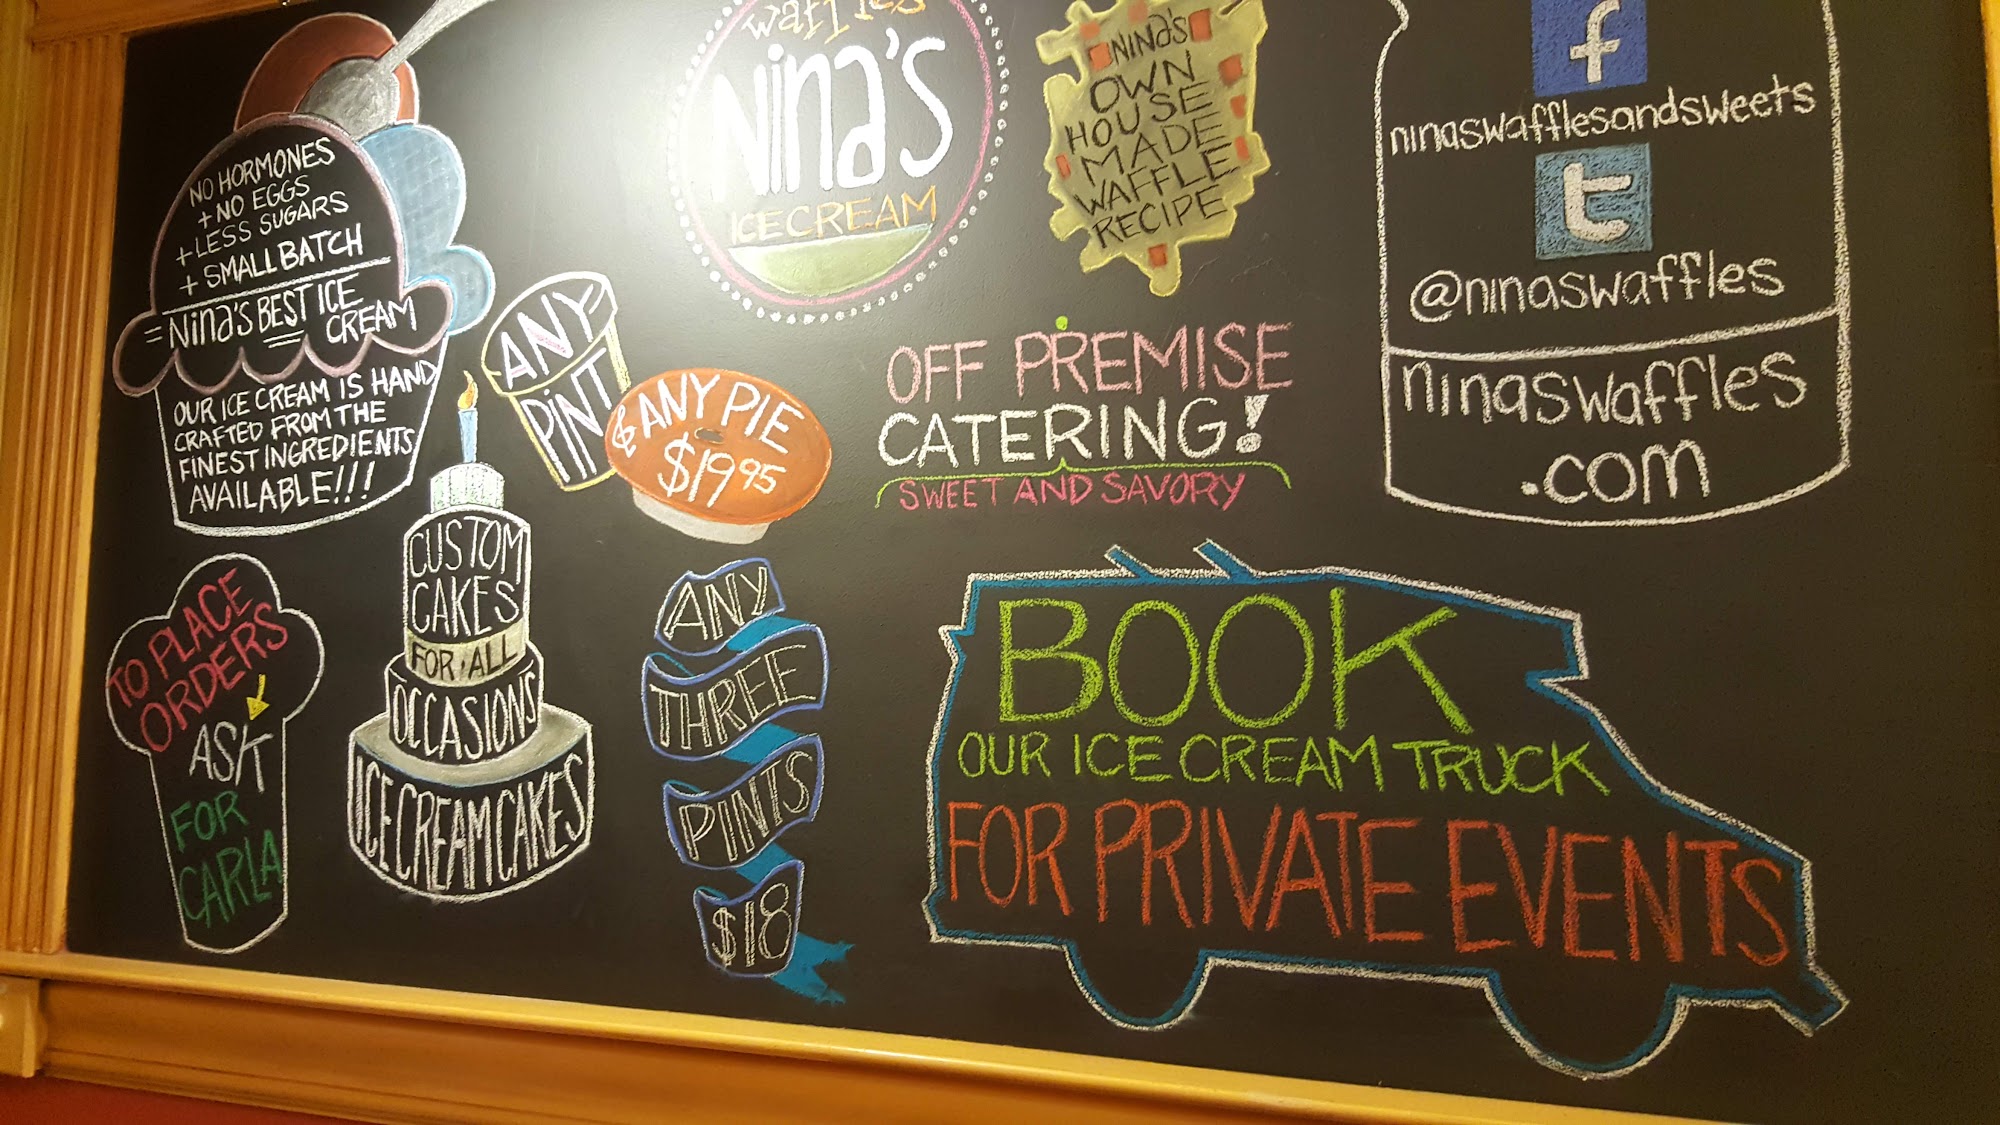 NO HORMONES
+ NO EGGS
+ LESS SUGARS
+ SMALL BATCH
= Nina's BEST ICE
CREAM
OUR ICE CREAM IS HAND
CRAFTED FROM THE
FINEST INGREDIENTS
AVAILABLE!!!
ANY
PINT
& ANY PIE
$19.95
waffles
Nina's
ICE CREAM
NINA'S
OWN
HOUSE
MADE
WAFFLE
RECIPE
OFF PREMISE
CATERING!
SWEET AND SAVORY
f
ninaswafflesandsweets
t
@ninaswaffles
ninaswaffles
.com
TO PLACE
ORDERS
ASK
FOR
CARLA
CUSTOM
CAKES
FOR ALL
OCCASIONS
ICE CREAM CAKES
ANY
THREE
PINTS
$18
BOOK
OUR ICE CREAM TRUCK
FOR PRIVATE EVENTS